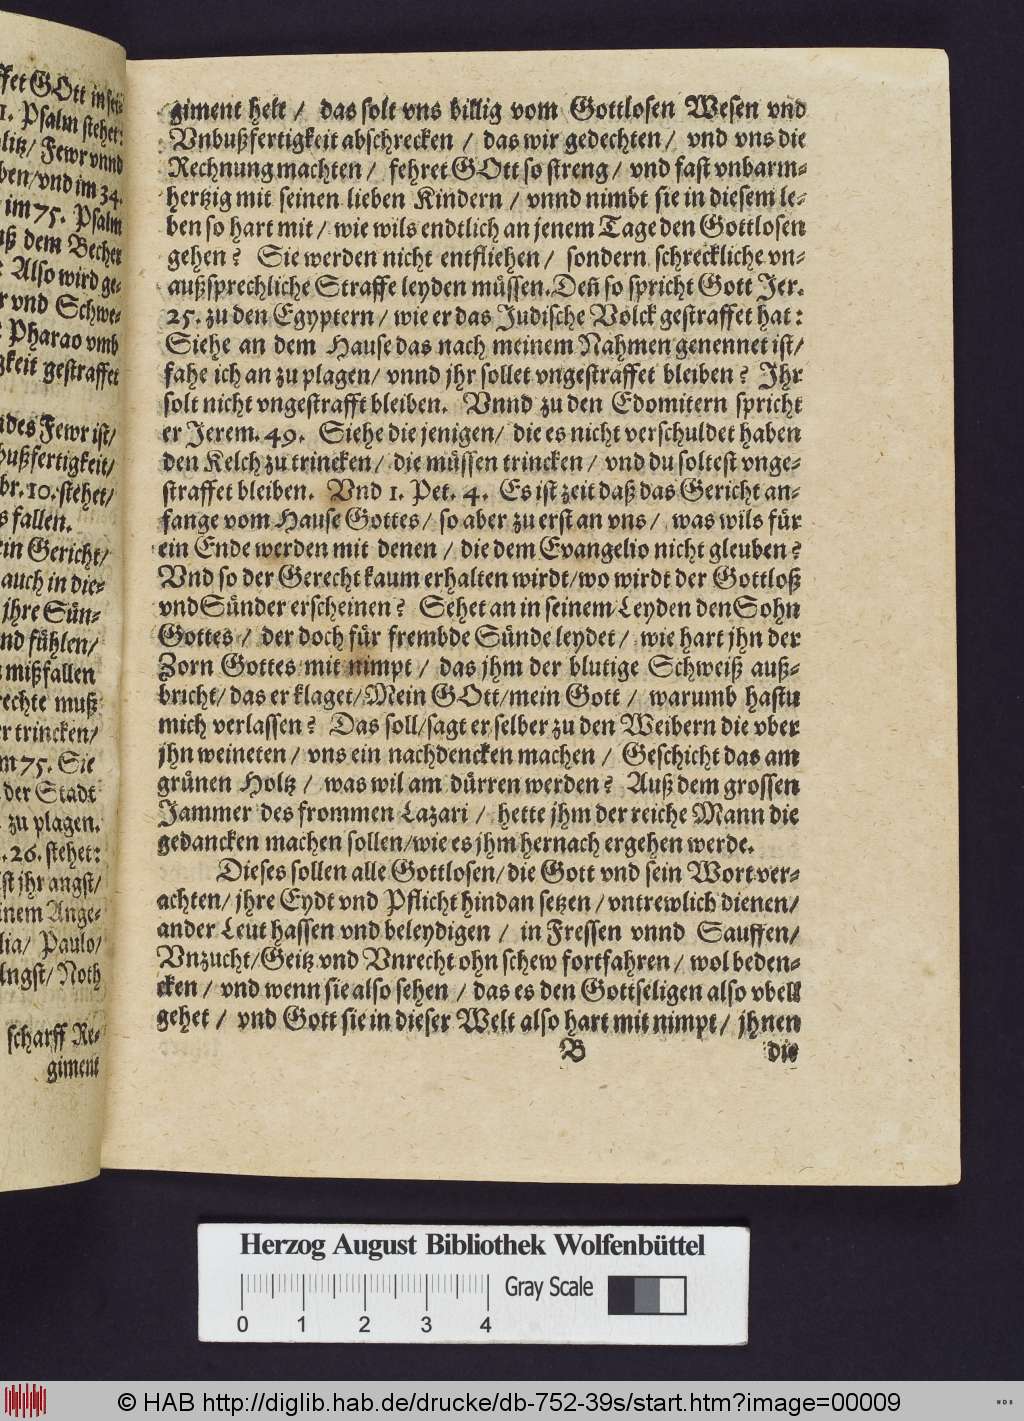 ffet GOtt in sei-
1. Psalm stehet:
litz/ Fewr vnnd
ben/vnd im 34.
im 75. Psalm
uß dem Becher
: Also wird ge-
r vnd Schwe-
Pharao vmb
gkeit gestraffet
ides Fewr ist/
bußfertigkeit/
br. 10. stehet/
s fallen.
ein Gericht/
auch in die-
jhre Sün-
nd fühlen/
mißfallen
rechte muß
er trincken/
m 75. Sie
der Stadt
zu plagen.
. 26. stehet:
st jhr angst/
inem Ange-
lia/ Paulo/
Angst/ Noth
scharff Re-
giment
giment helt / das solt vns billig vom Gottlosen Wesen vnd
Vnbußfertigkeit abschrecken / das wir gedechten / vnd vns die
Rechnung machten / fehret GOtt so streng / vnd fast vnbarm-
hertzig mit seinen lieben Kindern / vnnd nimbt sie in diesem le-
ben so hart mit / wie wils endtlich an jenem Tage den Gottlosen
gehen? Sie werden nicht entfliehen / sondern schreckliche vn-
außsprechliche Straffe leyden müssen. Deñ so spricht Gott Jer.
25. zu den Egyptern / wie er das Judische Volck gestraffet hat:
Siehe an dem Hause das nach meinem Nahmen genennet ist/
fahe ich an zu plagen/ vnnd jhr sollet vngestraffet bleiben? Ihr
solt nicht vngestrafft bleiben. Vnnd zu den Edomitern spricht
er Jerem. 49. Siehe die jenigen/ die es nicht verschuldet haben
den Kelch zu trincken / die müssen trincken / vnd du soltest vnge-
straffet bleiben. Vnd 1. Pet. 4. Es ist zeit daß das Gericht an-
fange vom Hause Gottes / so aber zu erst an vns / was wils für
ein Ende werden mit denen / die dem Evangelio nicht gleuben?
Vnd so der Gerecht kaum erhalten wirdt/wo wirdt der Gottloß
vnd Sünder erscheinen? Sehet an in seinem Leyden den Sohn
Gottes / der doch für frembde Sünde leydet / wie hart jhn der
Zorn Gottes mit nimpt / das jhm der blutige Schweiß auß-
bricht/ das er klaget/Mein GOtt/mein Gott / warumb hastu
mich verlassen? Das soll/sagt er selber zu den Weibern die vber
jhn weineten / vns ein nachdencken machen / Geschicht das am
grünen Holtz / was wil am dürren werden? Auß dem grossen
Jammer des frommen Lazari / hette jhm der reiche Mann die
gedancken machen sollen/wie es jhm hernach ergehen werde.
Dieses sollen alle Gottlosen/ die Gott vnd sein Wort ver-
achten/ jhre Eydt vnd Pflicht hindan setzen / vntrewlich dienen/
ander Leut hassen vnd beleydigen / in Fressen vnnd Sauffen/
Vnzucht/Geitz vnd Vnrecht ohn schew fortfahren / wol beden-
cken / vnd wenn sie also sehen / das es den Gottseligen also vbell
gehet / vnd Gott sie in dieser Welt also hart mit nimpt / jhnen
B die
Herzog August Bibliothek Wolfenbüttel
Gray Scale
0 1 2 3 4
© HAB http://diglib.hab.de/drucke/db-752-39s/start.htm?image=00009